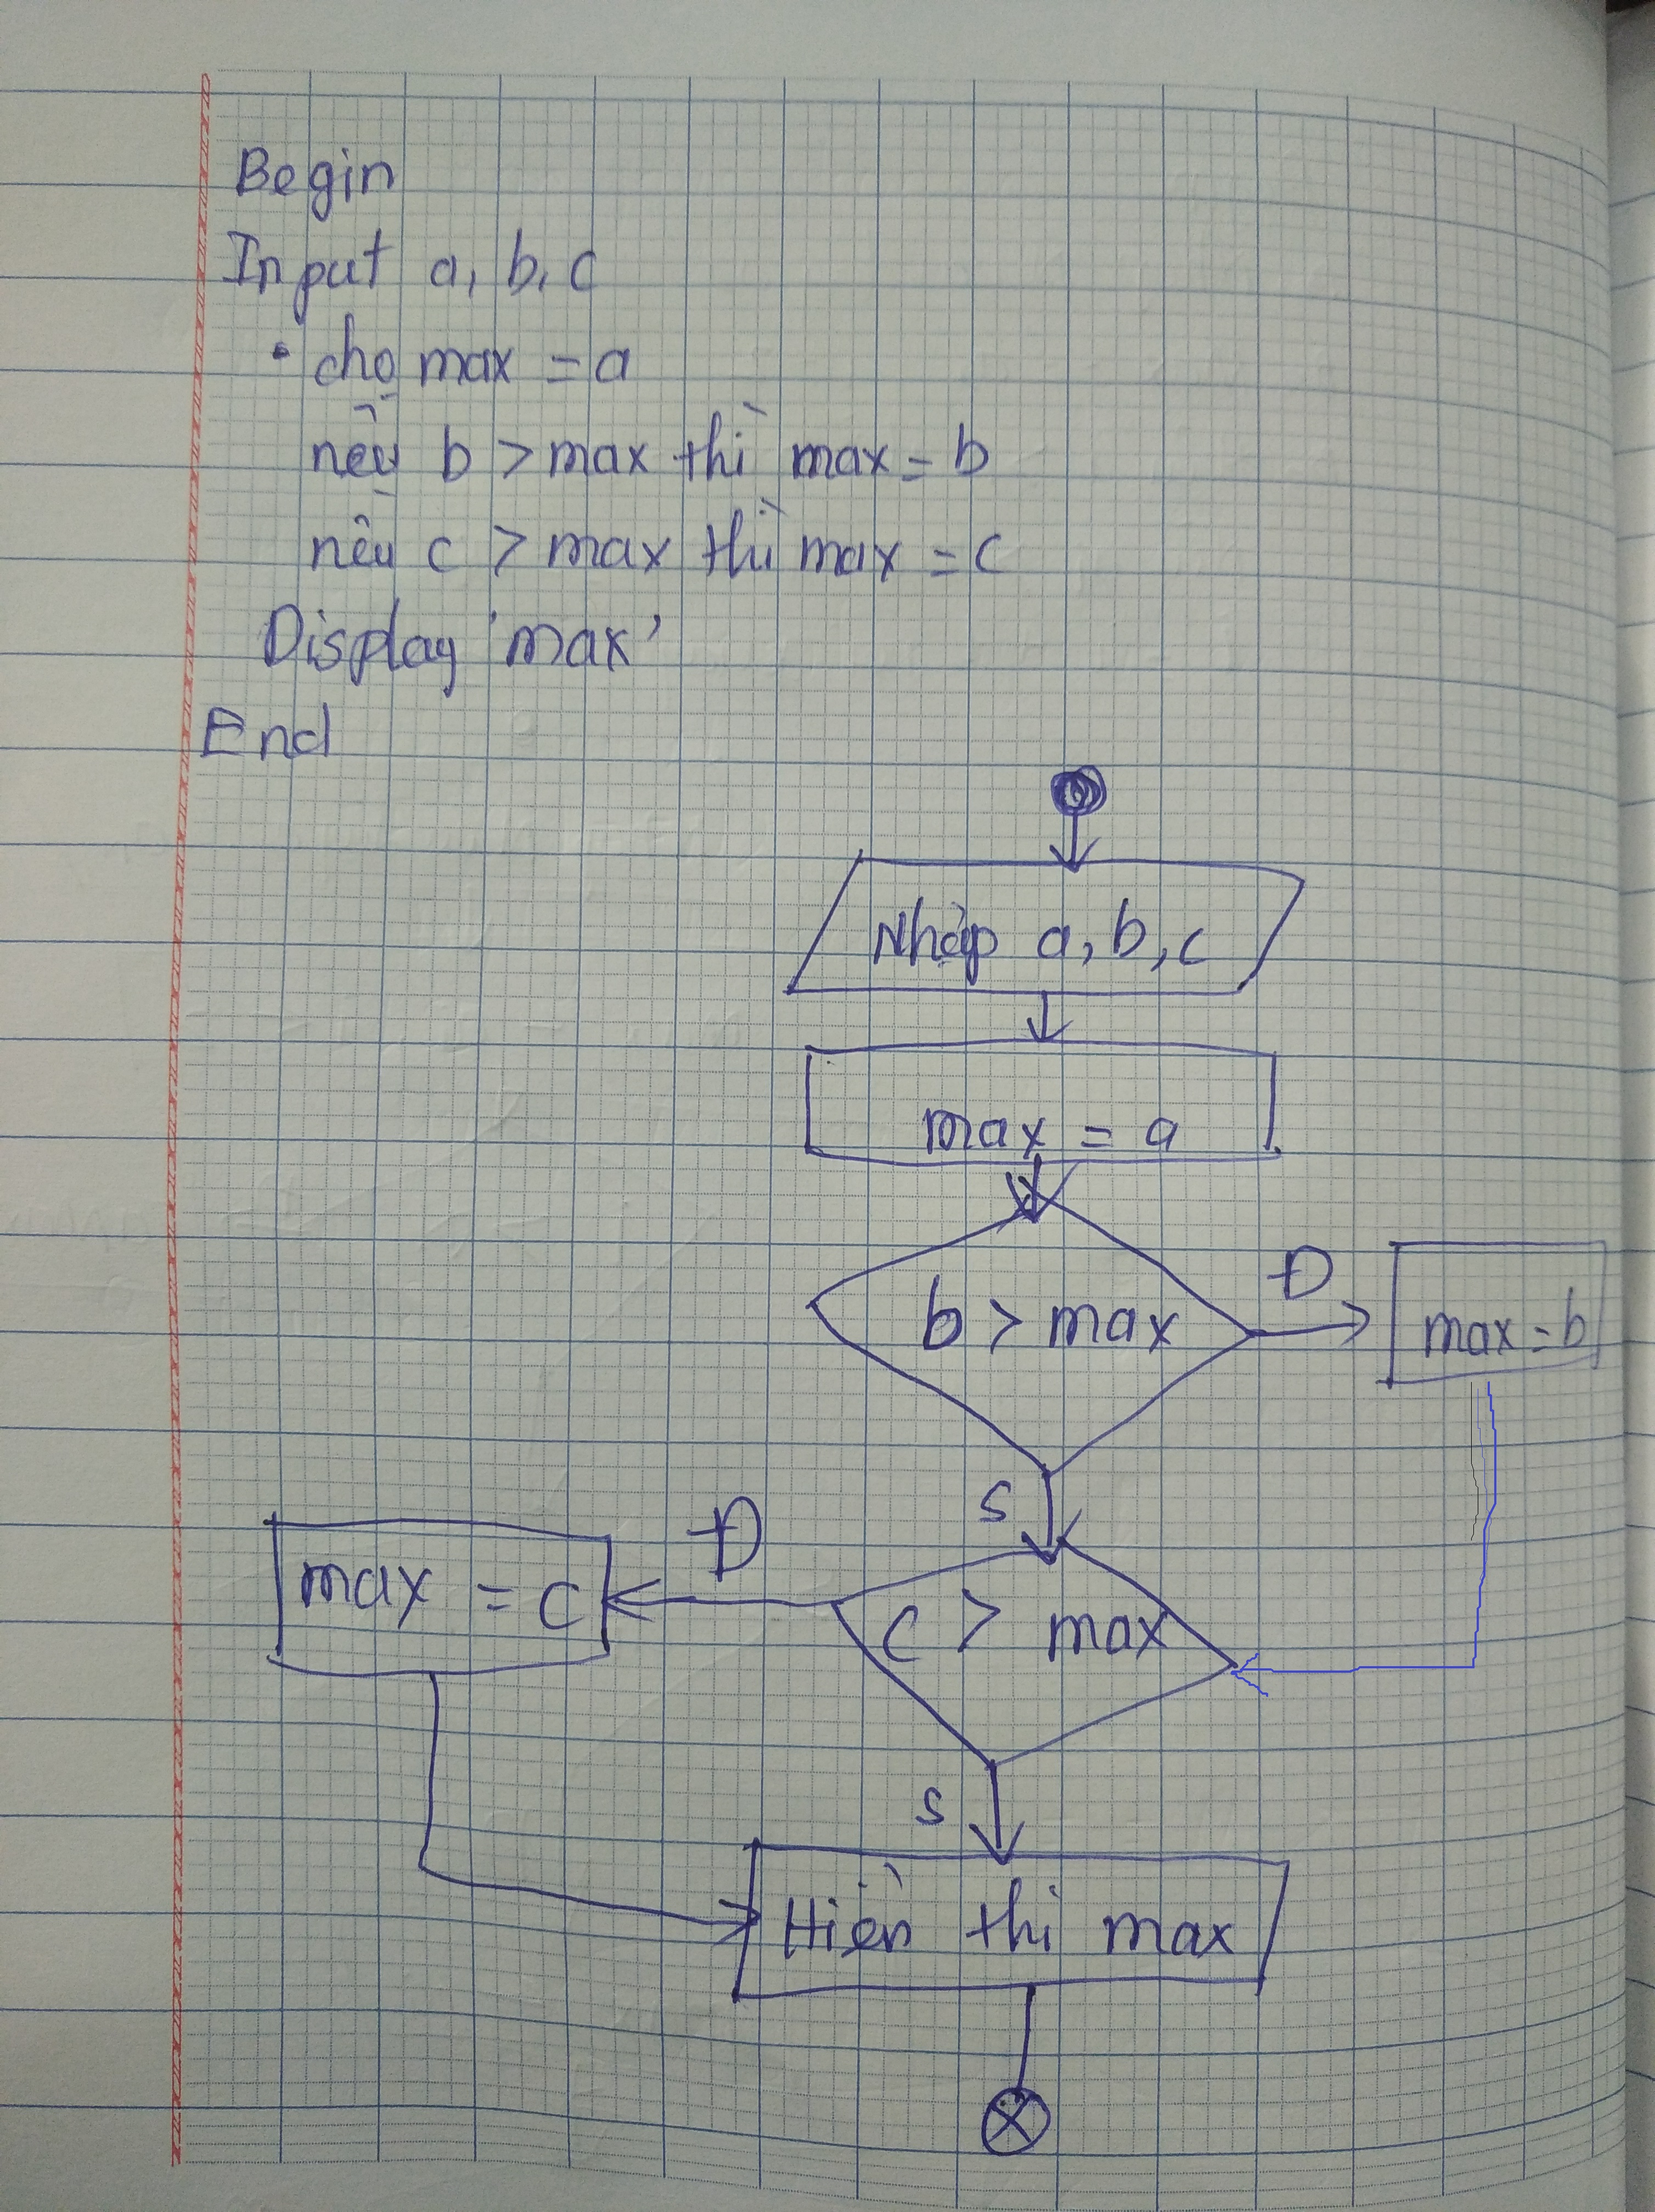 Begin
Input a, b, c
• cho max = a
nếu b > max thì max = b
nếu c > max thì max = c
Display 'max'
End
Nhập a, b, c
max = a
b > max
Đ
max = b
S
Đ
max = c
c > max
S
Hiển thị max